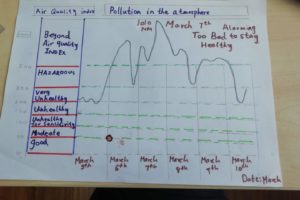 Air Quality index
Pollution in the atmosphere
Beyond
Air Quality
INDEX
HAZARDOUS
very
Unhealthy
Unhealthy
Unhealthy
for Sensitivity
Moderate
Good
1010
March 7th
Alarming
Too Bad to stay
Healthy
March
5th
March
6th
March
7th
March
8th
March
9th
March
10th
Date: March